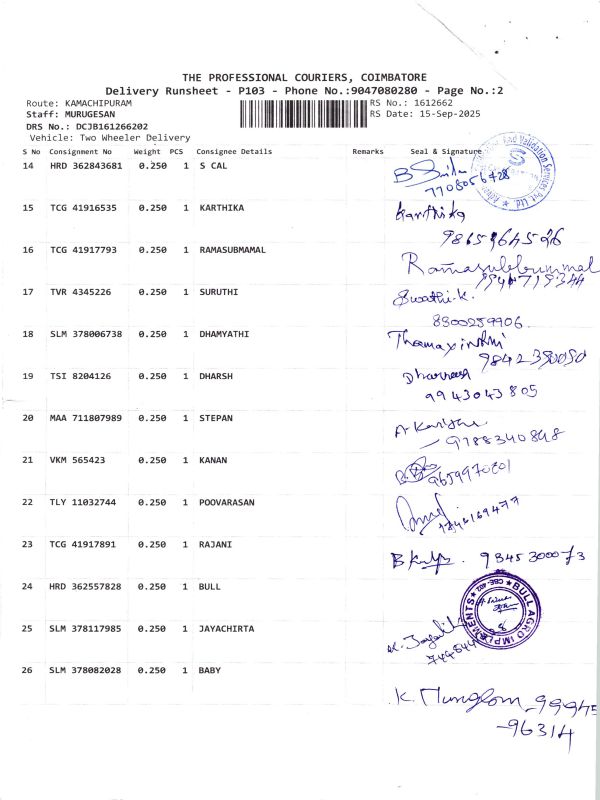 THE PROFESSIONAL COURIERS, COIMBATORE
Delivery Runsheet - P103 - Phone No.:9047080280 - Page No.:2
Route: KAMACHIPURAM RS No.: 1612662
Staff: MURUGESAN RS Date: 15-Sep-2025
DRS No.: DCJB161266202
Vehicle: Two Wheeler Delivery
S No Consignment No Weight PCS Consignee Details Remarks Seal & Signature
14 HRD 362843681 0.250 1 S CAL
7708056728
15 TCG 41916535 0.250 1 KARTHIKA Karthika
9865964526
16 TCG 41917793 0.250 1 RAMASUBMAMAL Ramasubbummal
17 TVR 4345226 0.250 1 SURUTHI Swathi.K.
8300259906.
18 SLM 378006738 0.250 1 DHAMYATHI
9842350050
19 TSI 8204126 0.250 1 DHARSH
9943043805
20 MAA 711807989 0.250 1 STEPAN
9788340848
21 VKM 565423 0.250 1 KANAN
22 TLY 11032744 0.250 1 POOVARASAN
23 TCG 41917891 0.250 1 RAJANI 9345300073
24 HRD 362557828 0.250 1 BULL BULL AGRO IMPLEMENTS
25 SLM 378117985 0.250 1 JAYACHIRTA
26 SLM 378082028 0.250 1 BABY
K. 99945
-96314